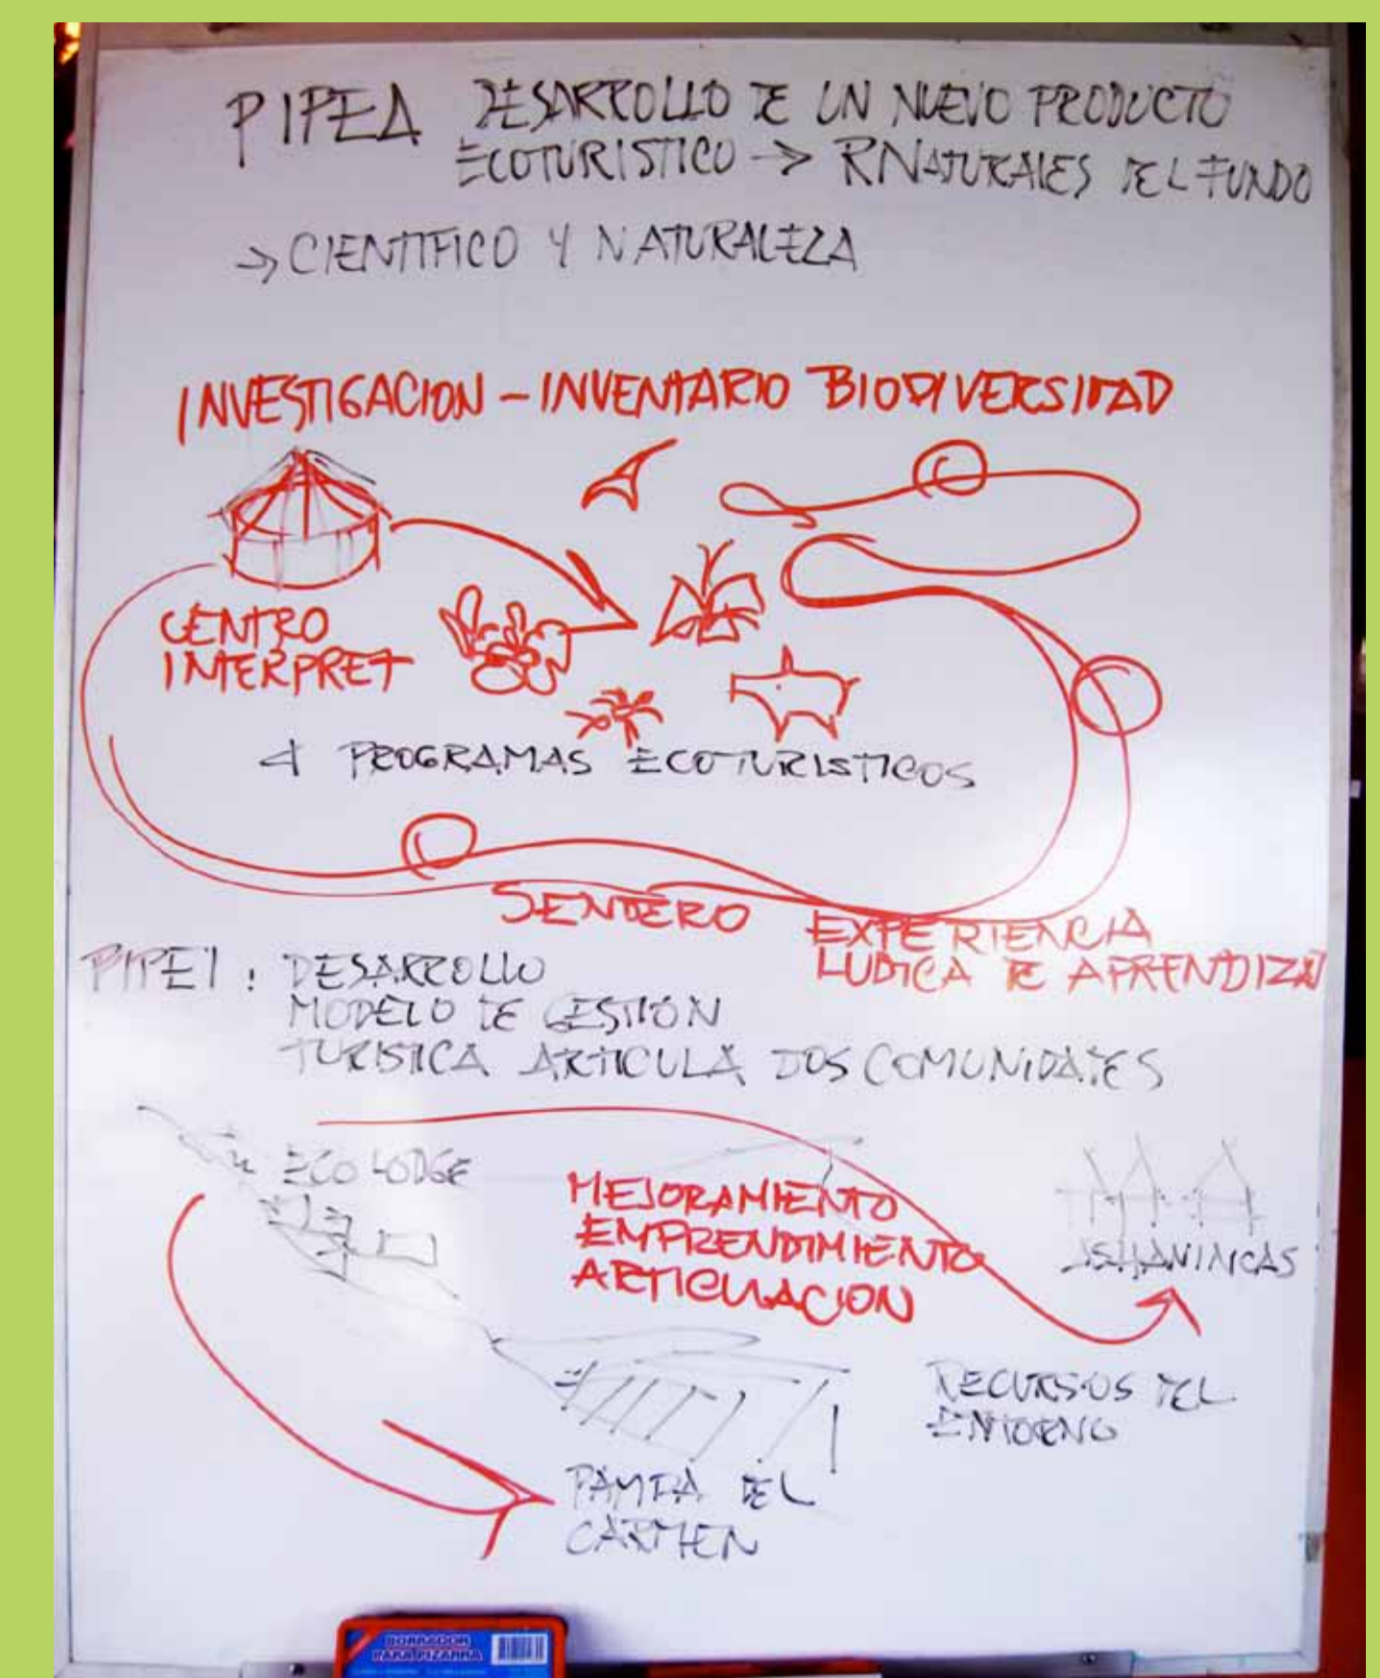 PIPEA DESARROLLO DE UN NUEVO PRODUCTO
ECOTURISTICO → RNATURALES DEL FUNDO
→ CIENTIFICO Y NATURALEZA
INVESTIGACION - INVENTARIO BIODIVERSIDAD
CENTRO
INTERPRET
4 PROGRAMAS ECOTURISTICOS
SENDERO
EXPERIENCIA
LUDICA DE APRENDIZAJ
PIPEI : DESARROLLO
MODELO DE GESTIÓN
TURISTICA ARTICULA DOS COMUNIDADES
ECO LODGE
MEJORAMIENTO
EMPRENDIMIENTO
ARTICULACION
ASHANINCAS
RECURSOS DEL
ENTORNO
PAMPA DEL
CARMEN
BORRADOR
PARA PIZARRA